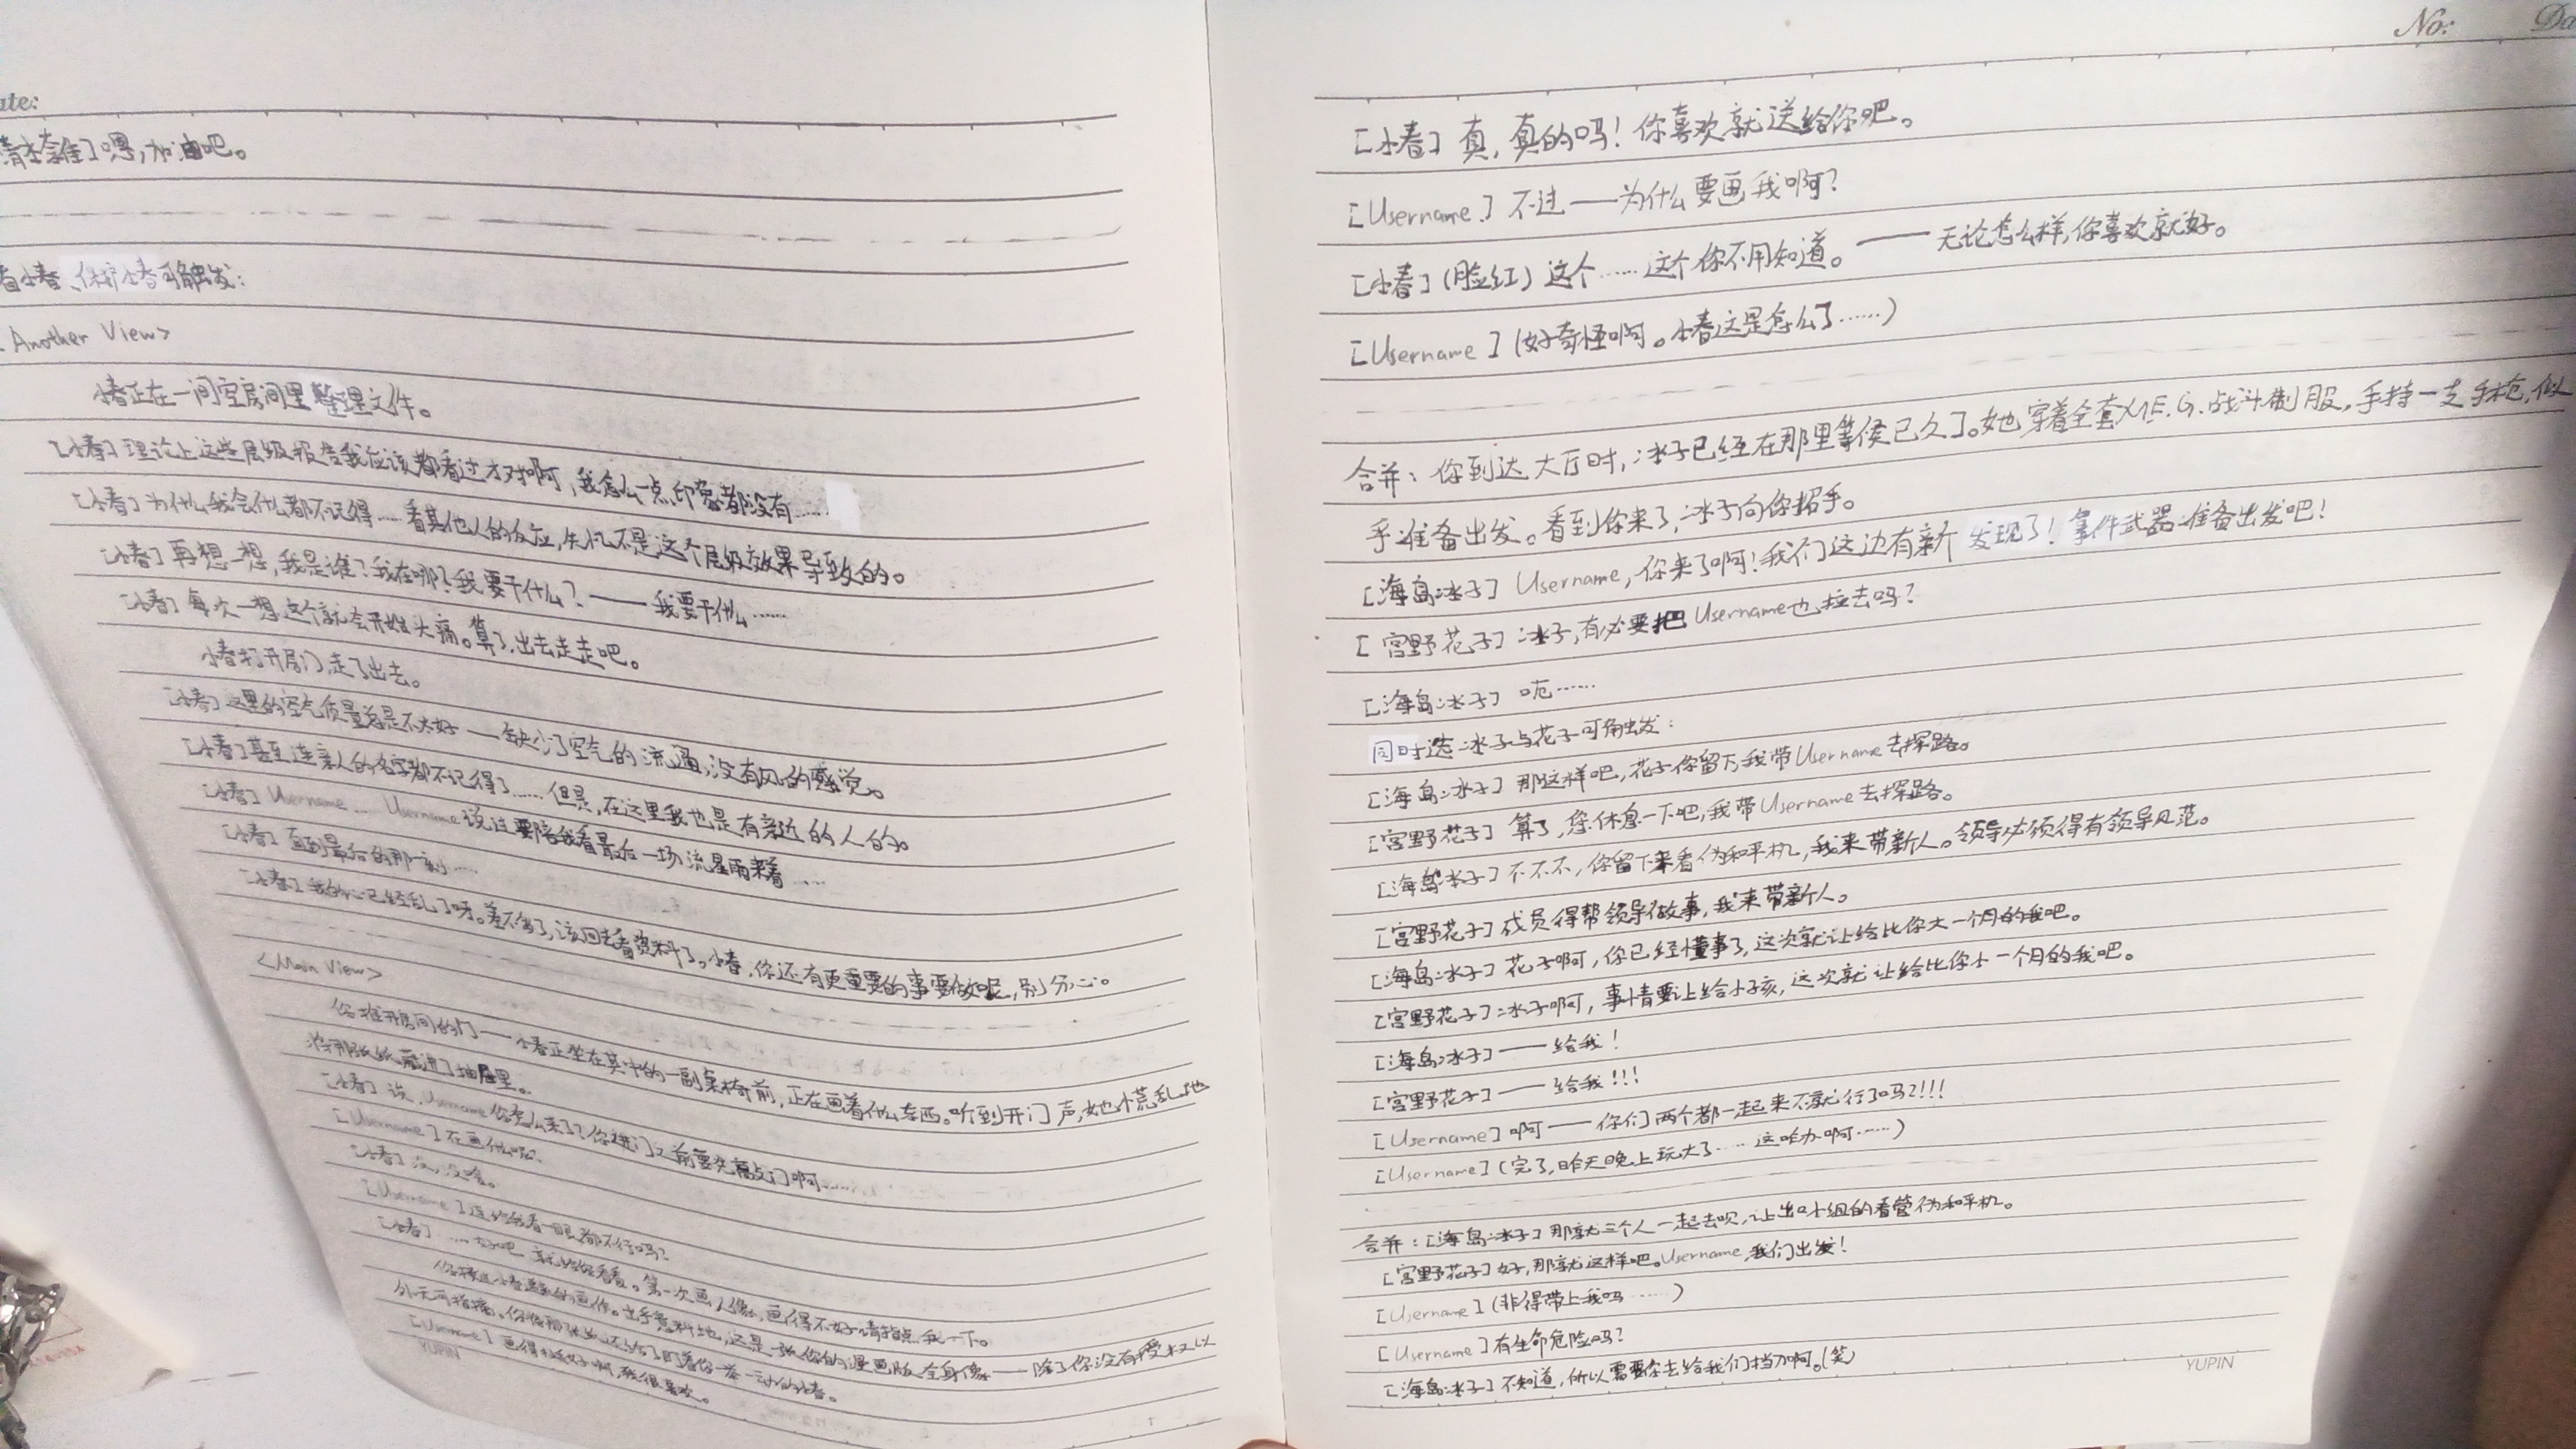 ate:
清水奈隹]嗯,加油吧。
看小春、保护小春可触发:
Another View>
小春正在一间空房间里整理文件。
[小春]理论上这些层级报告我应该都看过才对啊,我怎么一点印象都没有……
[小春]为什么我会什么都不记得……看其他人的反应,失忆不是这个层级效果导致的。
[小春]再想一想,我是谁?我在哪?我要干什么?——我要干什么……
[小春]每次一想这个就会开始头痛。算了,出去走走吧。
小春打开房门,走了出去。
[小春]这里的空气质量总是不太好——缺少了空气的流通,没有风的感觉。
[小春]甚至连亲人的名字都不记得了……但是,在这里我也是有亲近的人的。
[小春]Username……Username说过要陪我看最后一场流星雨来着……
[小春]直到最后的那一刻……
[小春]我的心已经乱了呀。差不多了,该回去看资料了。小春,你还有更重要的事要做呢,别分心。
<Main View>
你推开房间的门——小春正坐在其中的一副桌椅前,正在画着什么东西。听到开门声,她慌乱地
将那张纸藏进了抽屉里。
[小春]诶,Username你怎么来了?你进门之前要先敲敲门啊……
[Username]在画什么呢?
[小春]没,没啥。
[Username]连给我看一眼都不行吗?
[小春]……好吧,就给你看看。第一次画人像,画得不好请指点我一下。
你接过小春递来的画作。出乎意料地,这是一张你的漫画版全身像——除了你没有
外无可指摘。你将那张纸还给了盯着你一举一动的小春。
[Username]画得很好啊,我很喜欢。
YUPIN
No: Da
[小春]真,真的吗!你喜欢就送给你吧。
[Username]不过——为什么要画我啊?
[小春](脸红)这个……这个你不用知道。——无论怎么样,你喜欢就好。
[Username](好奇怪啊。小春这是怎么了……)
合并:你到达大厅时,冰子已经在那里等候已久了。她穿着全套M.E.G.战斗制服,手持一支手枪,似
乎准备出发。看到你来了,冰子向你招手。
[海岛冰子]Username,你来了啊!我们这边有新发现了!拿件武器准备出发吧!
[宫野花子]冰子,有必要把Username也拉去吗?
[海岛冰子]呃……
同时选冰子与花子可触发:
[海岛冰子]那这样吧,花子你留下我带Username去探路。
[宫野花子]算了,您休息一下吧,我带Username去探路。
[海岛冰子]不不不,你留下来看伪和平机,我来带新人。领导必须得有领导风范。
[宫野花子]成员得帮领导做事,我来带新人。
[海岛冰子]花子啊,你已经懂事了,这次就让给比你大一个月的我吧。
[宫野花子]冰子啊,事情要让给小孩,这次就让给比你小一个月的我吧。
[海岛冰子]——给我!
[宫野花子]——给我!!!
[Username]啊——你们两个都一起来不就行了吗?!!!
[Username](完了,昨天晚上玩大了……这咋办啊……)
合并:[海岛冰子]那就三个人一起去呗,让出口小组的看管伪和平机。
[宫野花子]好,那就这样吧。Username,我们出发!
[Username](非得带上我吗……)
[Username]有生命危险吗?
[海岛冰子]不知道,所以需要你去给我们挡刀啊。(笑)
YUPIN